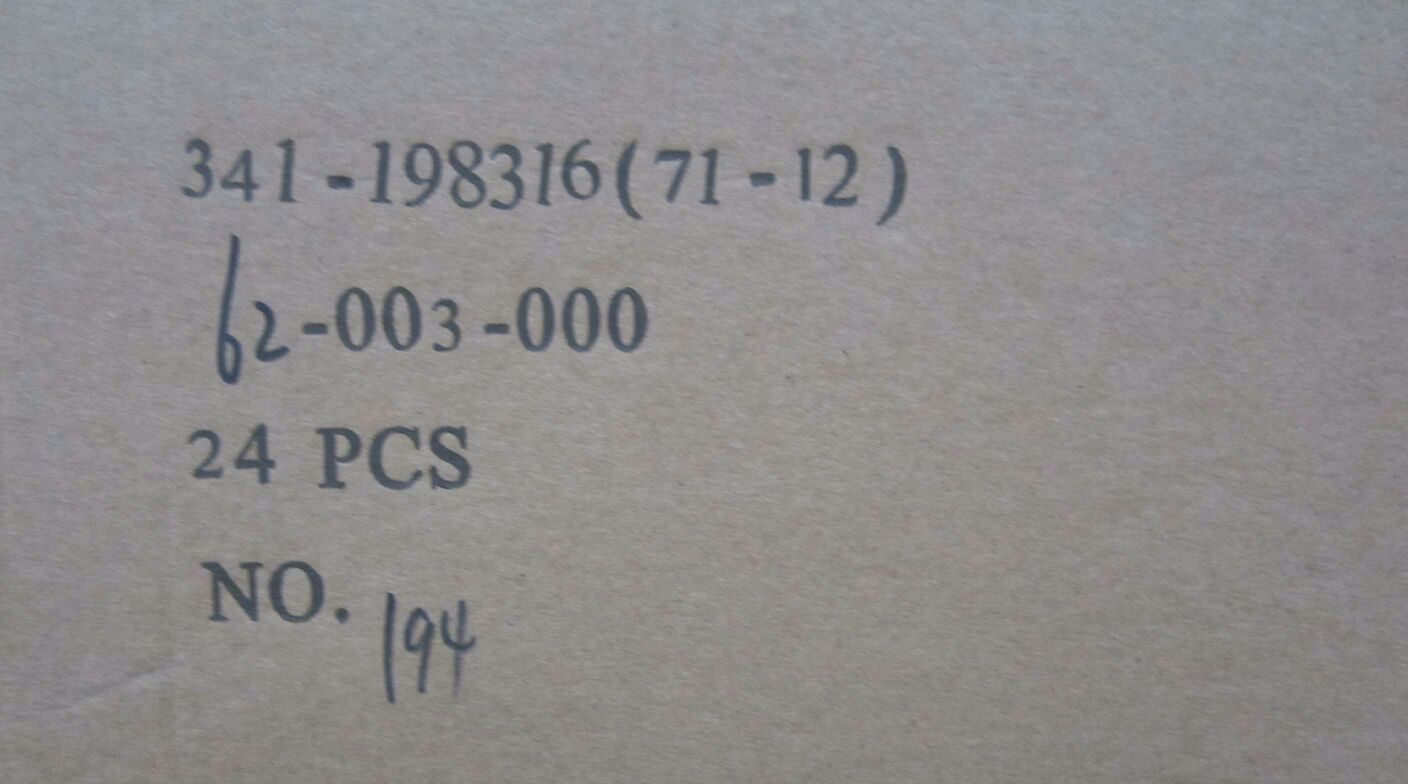 341-198316(71-12)
62-003-000
24 PCS
NO. 194